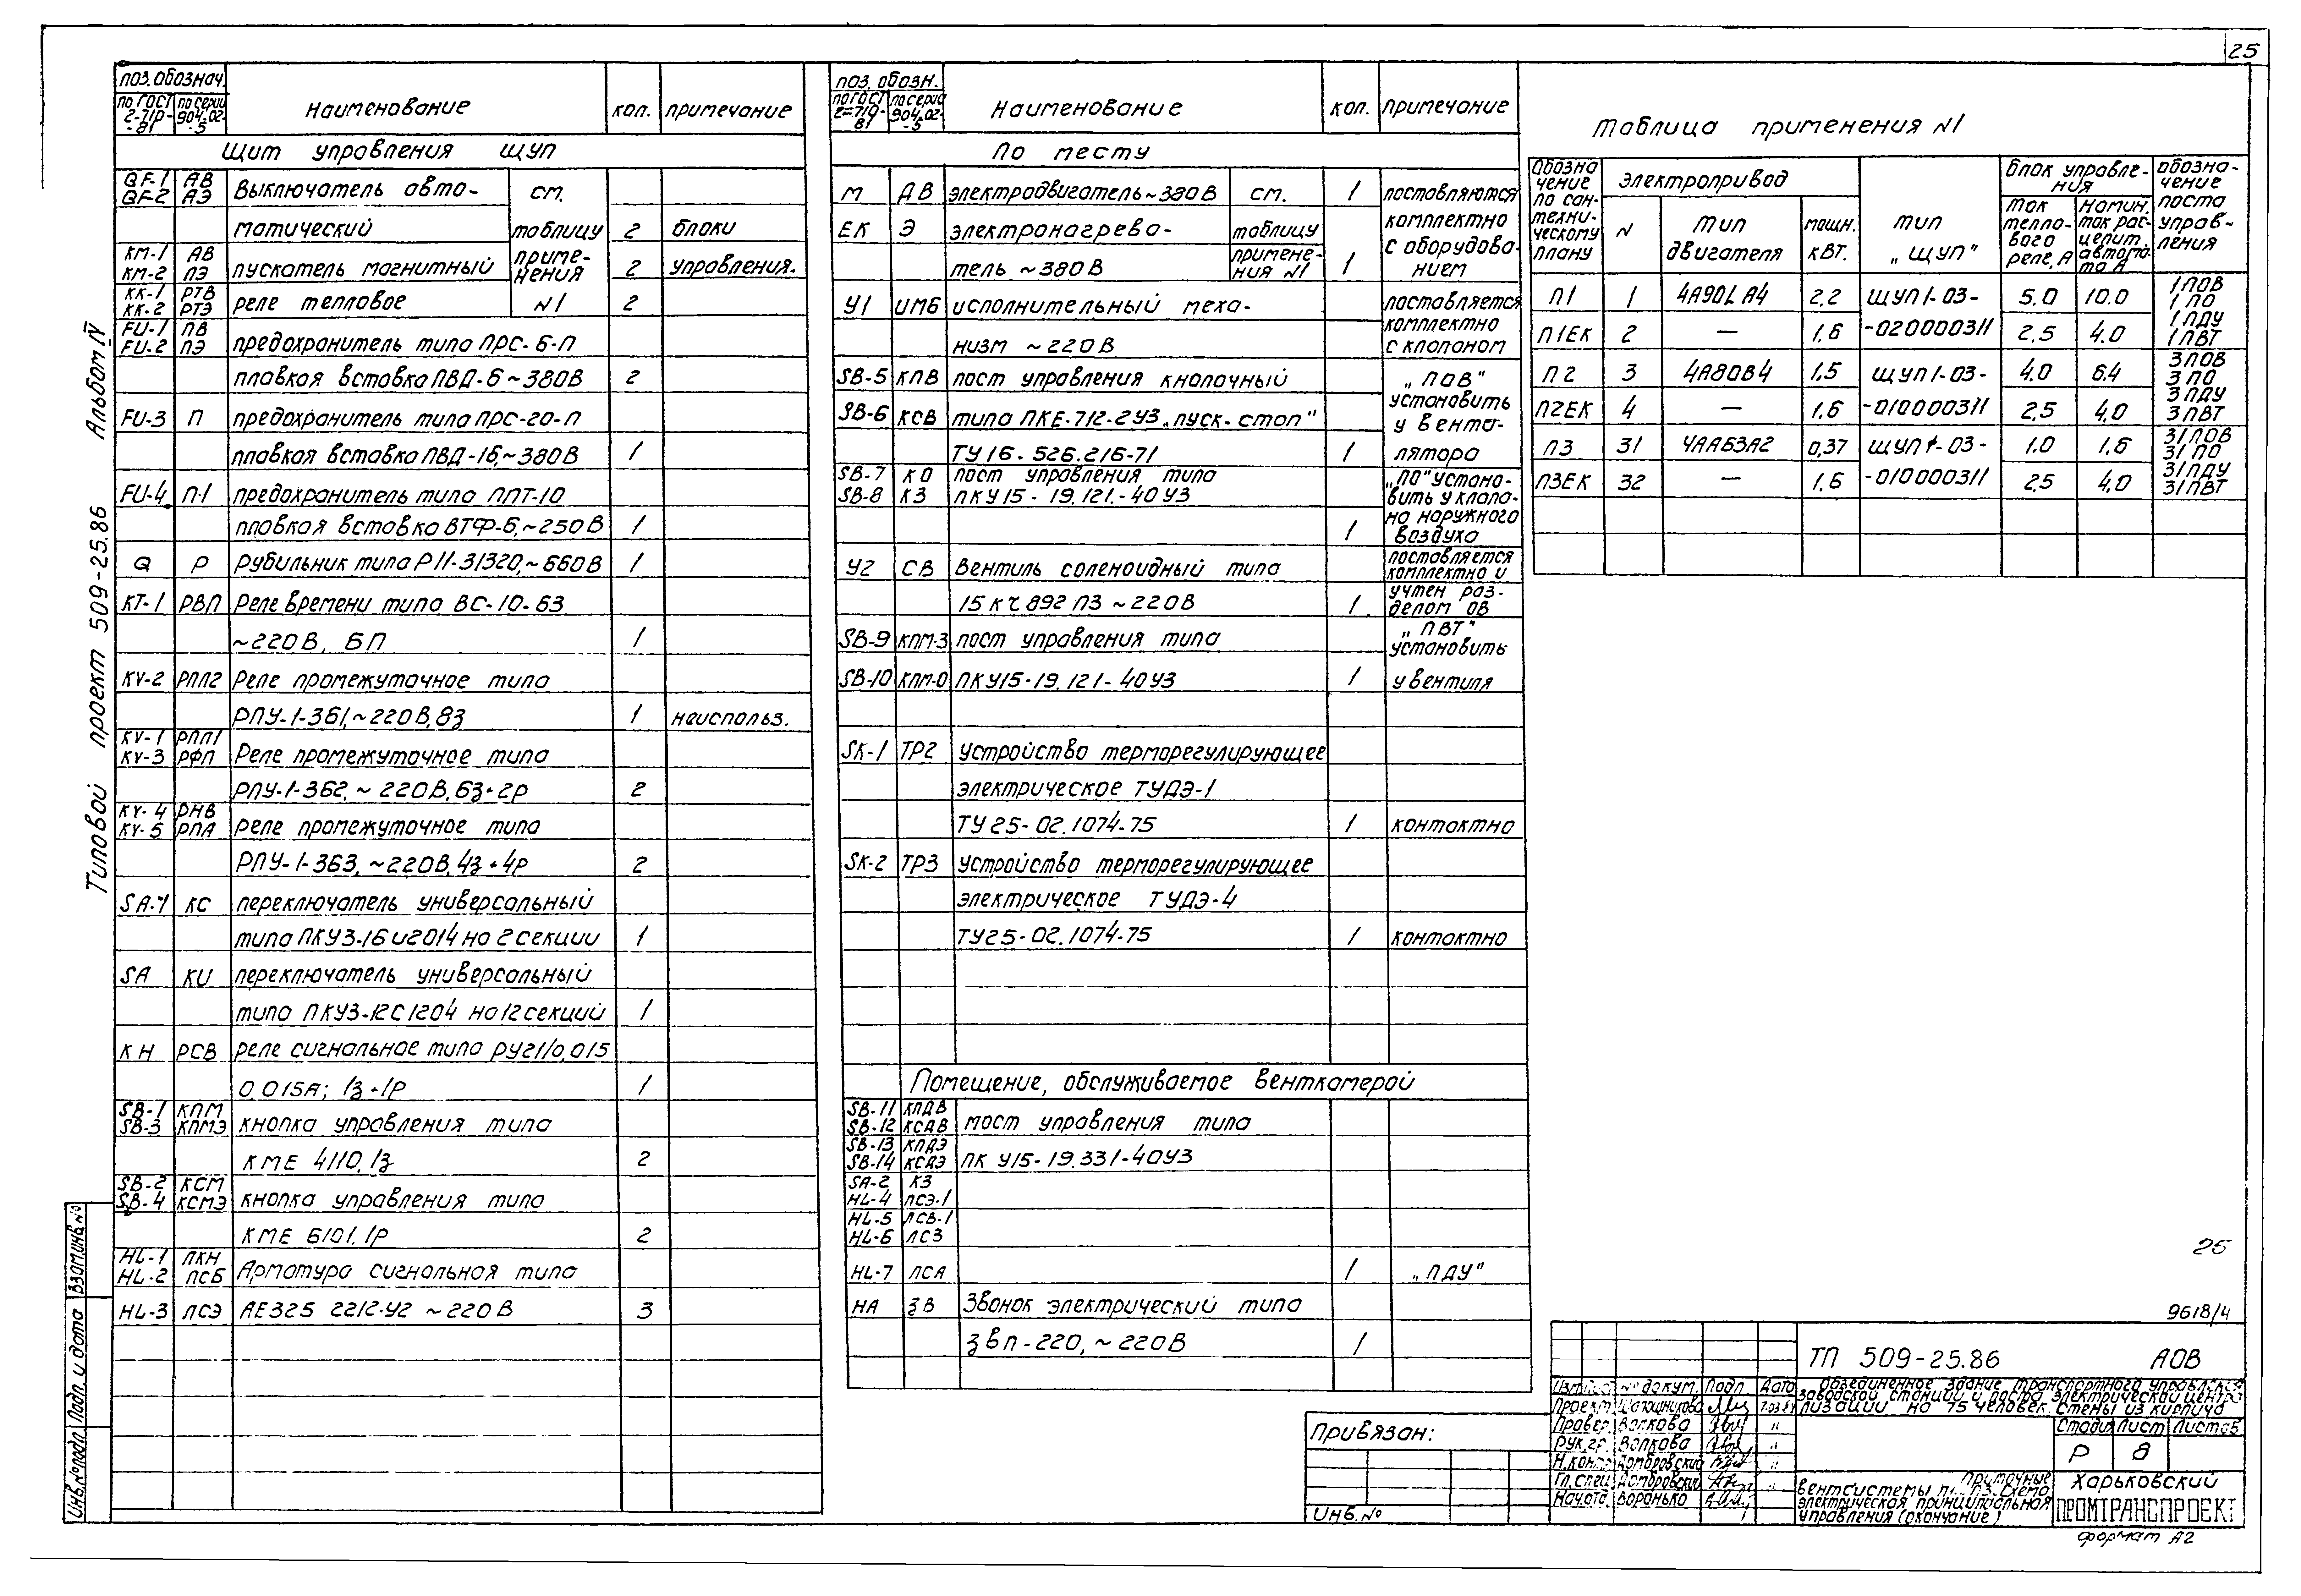 25
Типовой проект 509-25.86 Альбом IV
поз. обознач.
по ГОСТ 2-710-81 | по серии 904-02-5 | Наименование | кол. | примечание
Щит управления ЩУП
QF-1 QF-2 | АВ АЭ | Выключатель авто- | см.
матический | таблицу | 2 | блоки
КМ-1 КМ-2 | АВ ПЭ | пускатель магнитный | приме- нения | 2 | управления.
КК-1 КК-2 | РТВ РТЭ | реле тепловое | №1 | 2
FU-1 FU-2 | ПВ ПЭ | предохранитель типа ПРС-6-П
плавкая вставка ПВД-6 ~ 380В | 2
FU-3 | П | предохранитель типа ПРС-20-П
плавкая вставка ПВД-16, ~380В | 1
FU-4 | П-1 | предохранитель типа ППТ-10
плавкая вставка ВТФ-6, ~250В | 1
Q | Р | Рубильник типа Р11-31320, ~660В | 1
КТ-1 | РВП | Реле времени типа ВС-10-63
~220В, БП | 1
KV-2 | РПП2 | Реле промежуточное типа
РПУ-1-361, ~220В, 8з | 1 | неиспольз.
KV-1 KV-3 | РПП1 РФП | Реле промежуточное типа
РПУ-1-362, ~ 220В, 6з+2р | 2
KV-4 KV-5 | РНВ РПА | Реле промежуточное типа
РПУ-1-363, ~220В, 4з+4р | 2
SA-1 | КС | переключатель универсальный
типа ПКУ3-16И2014 на 2 секции | 1
SA | КИ | переключатель универсальный
типа ПКУ3-12С1204 на 12 секций | 1
КН | РСВ | реле сигнальное типа РУ21/0,015
0,015А; 1з+1р | 1
SB-1 SB-3 | КПМ КПМЭ | кнопка управления типа
КМЕ 4110, 1з | 2
SB-2 SB-4 | КСМ КСМЭ | кнопка управления типа
КМЕ 6101, 1р | 2
HL-1 HL-2 | ЛКН ЛСБ | Арматура сигнальная типа
HL-3 | ЛСЭ | АЕ325 2212-У2 ~220В | 3
поз. обозн.
по ГОСТ 2-710-81 | по серии 904-02-5 | Наименование | кол. | примечание
По месту
М | ДВ | электродвигатель ~380В | см. | 1 | поставляются
ЕК | Э | электронагрева- | таблицу | комплектно
с оборудова-
тель ~380В | примене- ния №1 | 1 | нием
У1 | ИМБ | исполнительный меха- | поставляется
комплектно
низм ~220В | с клапаном
SB-5 | КПВ | пост управления кнопочный | „ПОВ"
установить
SB-6 | КСВ | типа ПКЕ-712-2У3 „пуск-стоп" | у венти-
ТУ 16-526.216-71 | 1 | лятора
SB-7 SB-8 | КО КЗ | пост управления типа | „ПО" устано-
ПКУ15-19.121-40У3 | вить у клапа-
на наружного
1 | воздуха
У2 | СВ | Вентиль соленоидный типа | поставляется комплектно и
15кч892п3 ~220В | 1 | учтен раз- делом ОВ
SB-9 | КПМ-3 | пост управления типа | „ПВТ" установить
SB-10 | КПМ-0 | ПКУ15-19.121-40У3 | 1 | у вентиля
SK-1 | ТР2 | Устройство терморегулирующее
электрическое ТУДЭ-1
ТУ 25-02.1074-75 | 1 | контактно
SK-2 | ТР3 | Устройство терморегулирующее
электрическое ТУДЭ-4
ТУ25-02.1074-75 | 1 | контактно
Помещение, обслуживаемое венткамерой
SB-11 SB-12 | КПДВ КСДВ | пост управления типа
SB-13 SB-14 | КПДЭ КСДЭ | ПКУ15-19.331-40У3
SA-2 | КЗ
HL-4 | ЛСЭ-1
HL-5 | ЛСВ-1
HL-6 | ЛСЗ
HL-7 | ЛСА | 1 | „ПДУ"
НА | ЗВ | Звонок электрический типа
ЗВП-220, ~220В | 1
Таблица применения №1
Обозна чение по сан- техни- ческому плану | Электропривод | тип „ЩУП" | блок управле- ния | обозна- чение поста управ- ления
N | Тип двигателя | мощн. кВт. | Ток тепло- вого реле, А | Номин. ток рас- цепит. автома- та А
П1 | 1 | 4А90LА4 | 2,2 | ЩУП1-03- | 5.0 | 10.0 | 1ПОВ 1ПО
П1ЕК | 2 | — | 1,6 | -020000311 | 2,5 | 4.0 | 1ПДУ 1ПВТ
П2 | 3 | 4А80В4 | 1,5 | ЩУП1-03- | 4,0 | 6.4 | 3ПОВ 3ПО
П2ЕК | 4 | — | 1,6 | -010000311 | 2,5 | 4,0 | 3ПДУ 3ПВТ
П3 | 31 | 4АА63А2 | 0,37 | ЩУП1-03- | 1.0 | 1,6 | 31ПОВ 31ПО
П3ЕК | 32 | — | 1,6 | -010000311 | 2,5 | 4,0 | 31ПДУ 31ПВТ
25
9618/4
ТП 509-25.86 АОВ
Изм. Лист № докум. Подп. Дата
Объединенное здание транспортного управления
заводской станции и поста электрической центра
лизации на 75 человек. Стены из кирпича
Проект. Шапошникова
Провер. Волкова
Рук.гр. Волкова
Н.конт. Домбровский
Гл.спец. Домбровский
Нач.отд. Воронько
Стадия Лист Листов
Р 8
Приточные
вентсистемы П1...П3. Схема
электрическая принципиальная
управления (окончание)
Харьковский
ПРОМТРАНСПРОЕКТ
формат А2
Привязан:
Инв.№
Взам.инв.№
Подп. и дата
Инв.№ подл.